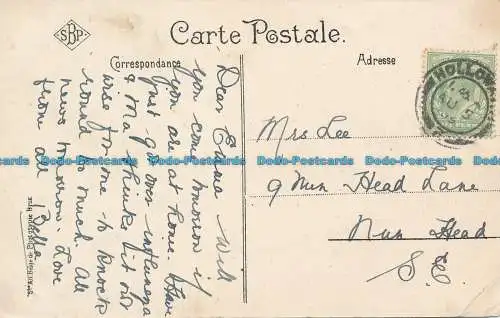 SBP
Carte Postale.
Correspondance
Adresse
Dear Emma Will
you come tomorrow if
you are at home. I have
just got over influenza
& Ma thinks it not
wise for me to knock
round too much. All
news tomorrow. Love
from all Bella
Mrs Lee
9 Nun Head Lane
Nun Head
S.E.
HOLLOW
AU
Dodo-Postcards Dodo-Postcards Dodo-Postcards Dodo-Postcards Dodo-Postcards